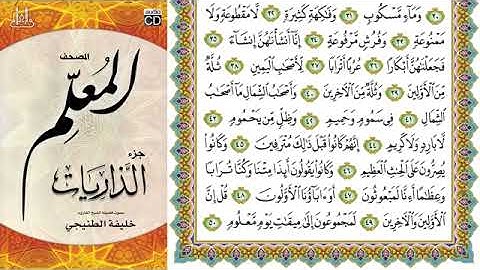 audio CD
المصحف
المُعلِّم
جزء
الذاريات
بصوت فضيلة الشيخ القارئ
خليفة الطنيجي
٣٠ وَمَآءٍ مَّسْكُوبٍ ٣١ وَفَٰكِهَةٍ كَثِيرَةٍ ٣٢ لَّا مَقْطُوعَةٍ وَلَا
مَمْنُوعَةٍ ٣٣ وَفُرُشٍ مَّرْفُوعَةٍ ٣٤ إِنَّآ أَنشَأْنَٰهُنَّ إِنشَآءً ٣٥
فَجَعَلْنَٰهُنَّ أَبْكَارًا ٣٦ عُرُبًا أَتْرَابًا ٣٧ لِّأَصْحَٰبِ ٱلْيَمِينِ ٣٨ ثُلَّةٌ
مِّنَ ٱلْأَوَّلِينَ ٣٩ وَثُلَّةٌ مِّنَ ٱلْءَاخِرِينَ ٤٠ وَأَصْحَٰبُ ٱلشِّمَالِ مَآ أَصْحَٰبُ
ٱلشِّمَالِ ٤١ فِي سَمُومٍ وَحَمِيمٍ ٤٢ وَظِلٍّ مِّن يَحْمُومٍ ٤٣
لَّا بَارِدٍ وَلَا كَرِيمٍ ٤٤ إِنَّهُمْ كَانُوا۟ قَبْلَ ذَٰلِكَ مُتْرَفِينَ ٤٥ وَكَانُوا۟
يُصِرُّونَ عَلَى ٱلْحِنثِ ٱلْعَظِيمِ ٤٦ وَكَانُوا۟ يَقُولُونَ أَئِذَا مِتْنَا وَكُنَّا تُرَابًا
وَعِظَٰمًا أَءِنَّا لَمَبْعُوثُونَ ٤٧ أَوَءَابَآؤُنَا ٱلْأَوَّلُونَ ٤٨ قُلْ إِنَّ
ٱلْأَوَّلِينَ وَٱلْءَاخِرِينَ ٤٩ لَمَجْمُوعُونَ إِلَىٰ مِيقَٰتِ يَوْمٍ مَّعْلُومٍ ٥٠